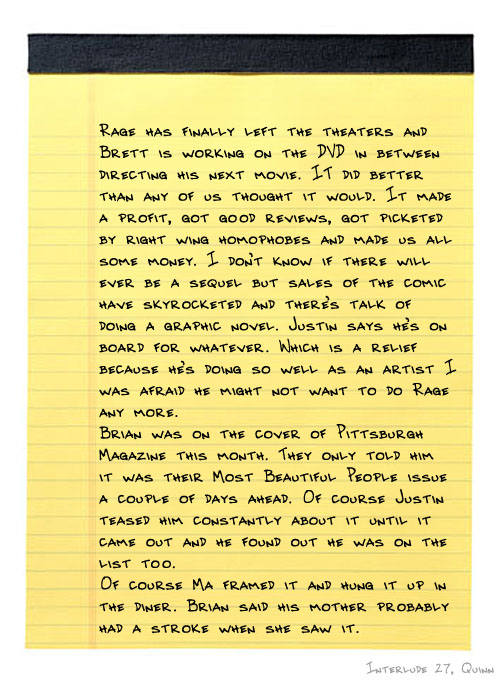 Rage has finally left the theaters and
Brett is working on the DVD in between
directing his next movie. It did better
than any of us thought it would. It made
a profit, got good reviews, got picketed
by right wing homophobes and made us all
some money. I don't know if there will
ever be a sequel but sales of the comic
have skyrocketed and there's talk of
doing a graphic novel. Justin says he's on
board for whatever. Which is a relief
because he's doing so well as an artist I
was afraid he might not want to do Rage
any more.
Brian was on the cover of Pittsburgh
Magazine this month. They only told him
it was their Most Beautiful People issue
a couple of days ahead. Of course Justin
teased him constantly about it until it
came out and he found out he was on the
list too.
Of course Ma framed it and hung it up in
the diner. Brian said his mother probably
had a stroke when she saw it.
Interlude 27, Quinn